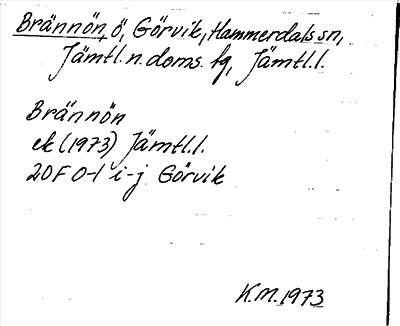 Brännön, ö, Görvik, Hammerdals sn,
Jämtl. n. doms. fg, Jämtl. l.
Brännön
ek (1973) Jämtl. l.
20F 0-1 i-j Görvik
K.M. 1973